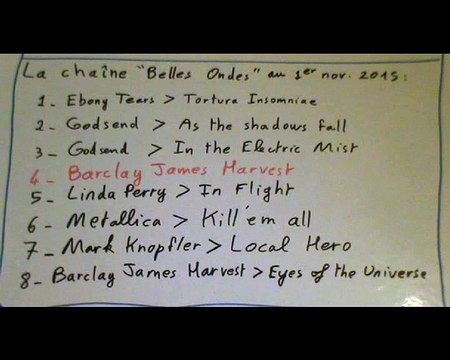 La chaîne "Belles Ondes" au 1er nov. 2015:
1_ Ebony Tears > Tortura Insomniae
2_ Godsend > As the shadows fall
3_ Godsend > In the Electric Mist
4_ Barclay James Harvest
5_ Linda Perry > In Flight
6_ Metallica > Kill'em all
7_ Mark Knopfler > Local Hero
8_ Barclay James Harvest > Eyes of the Universe